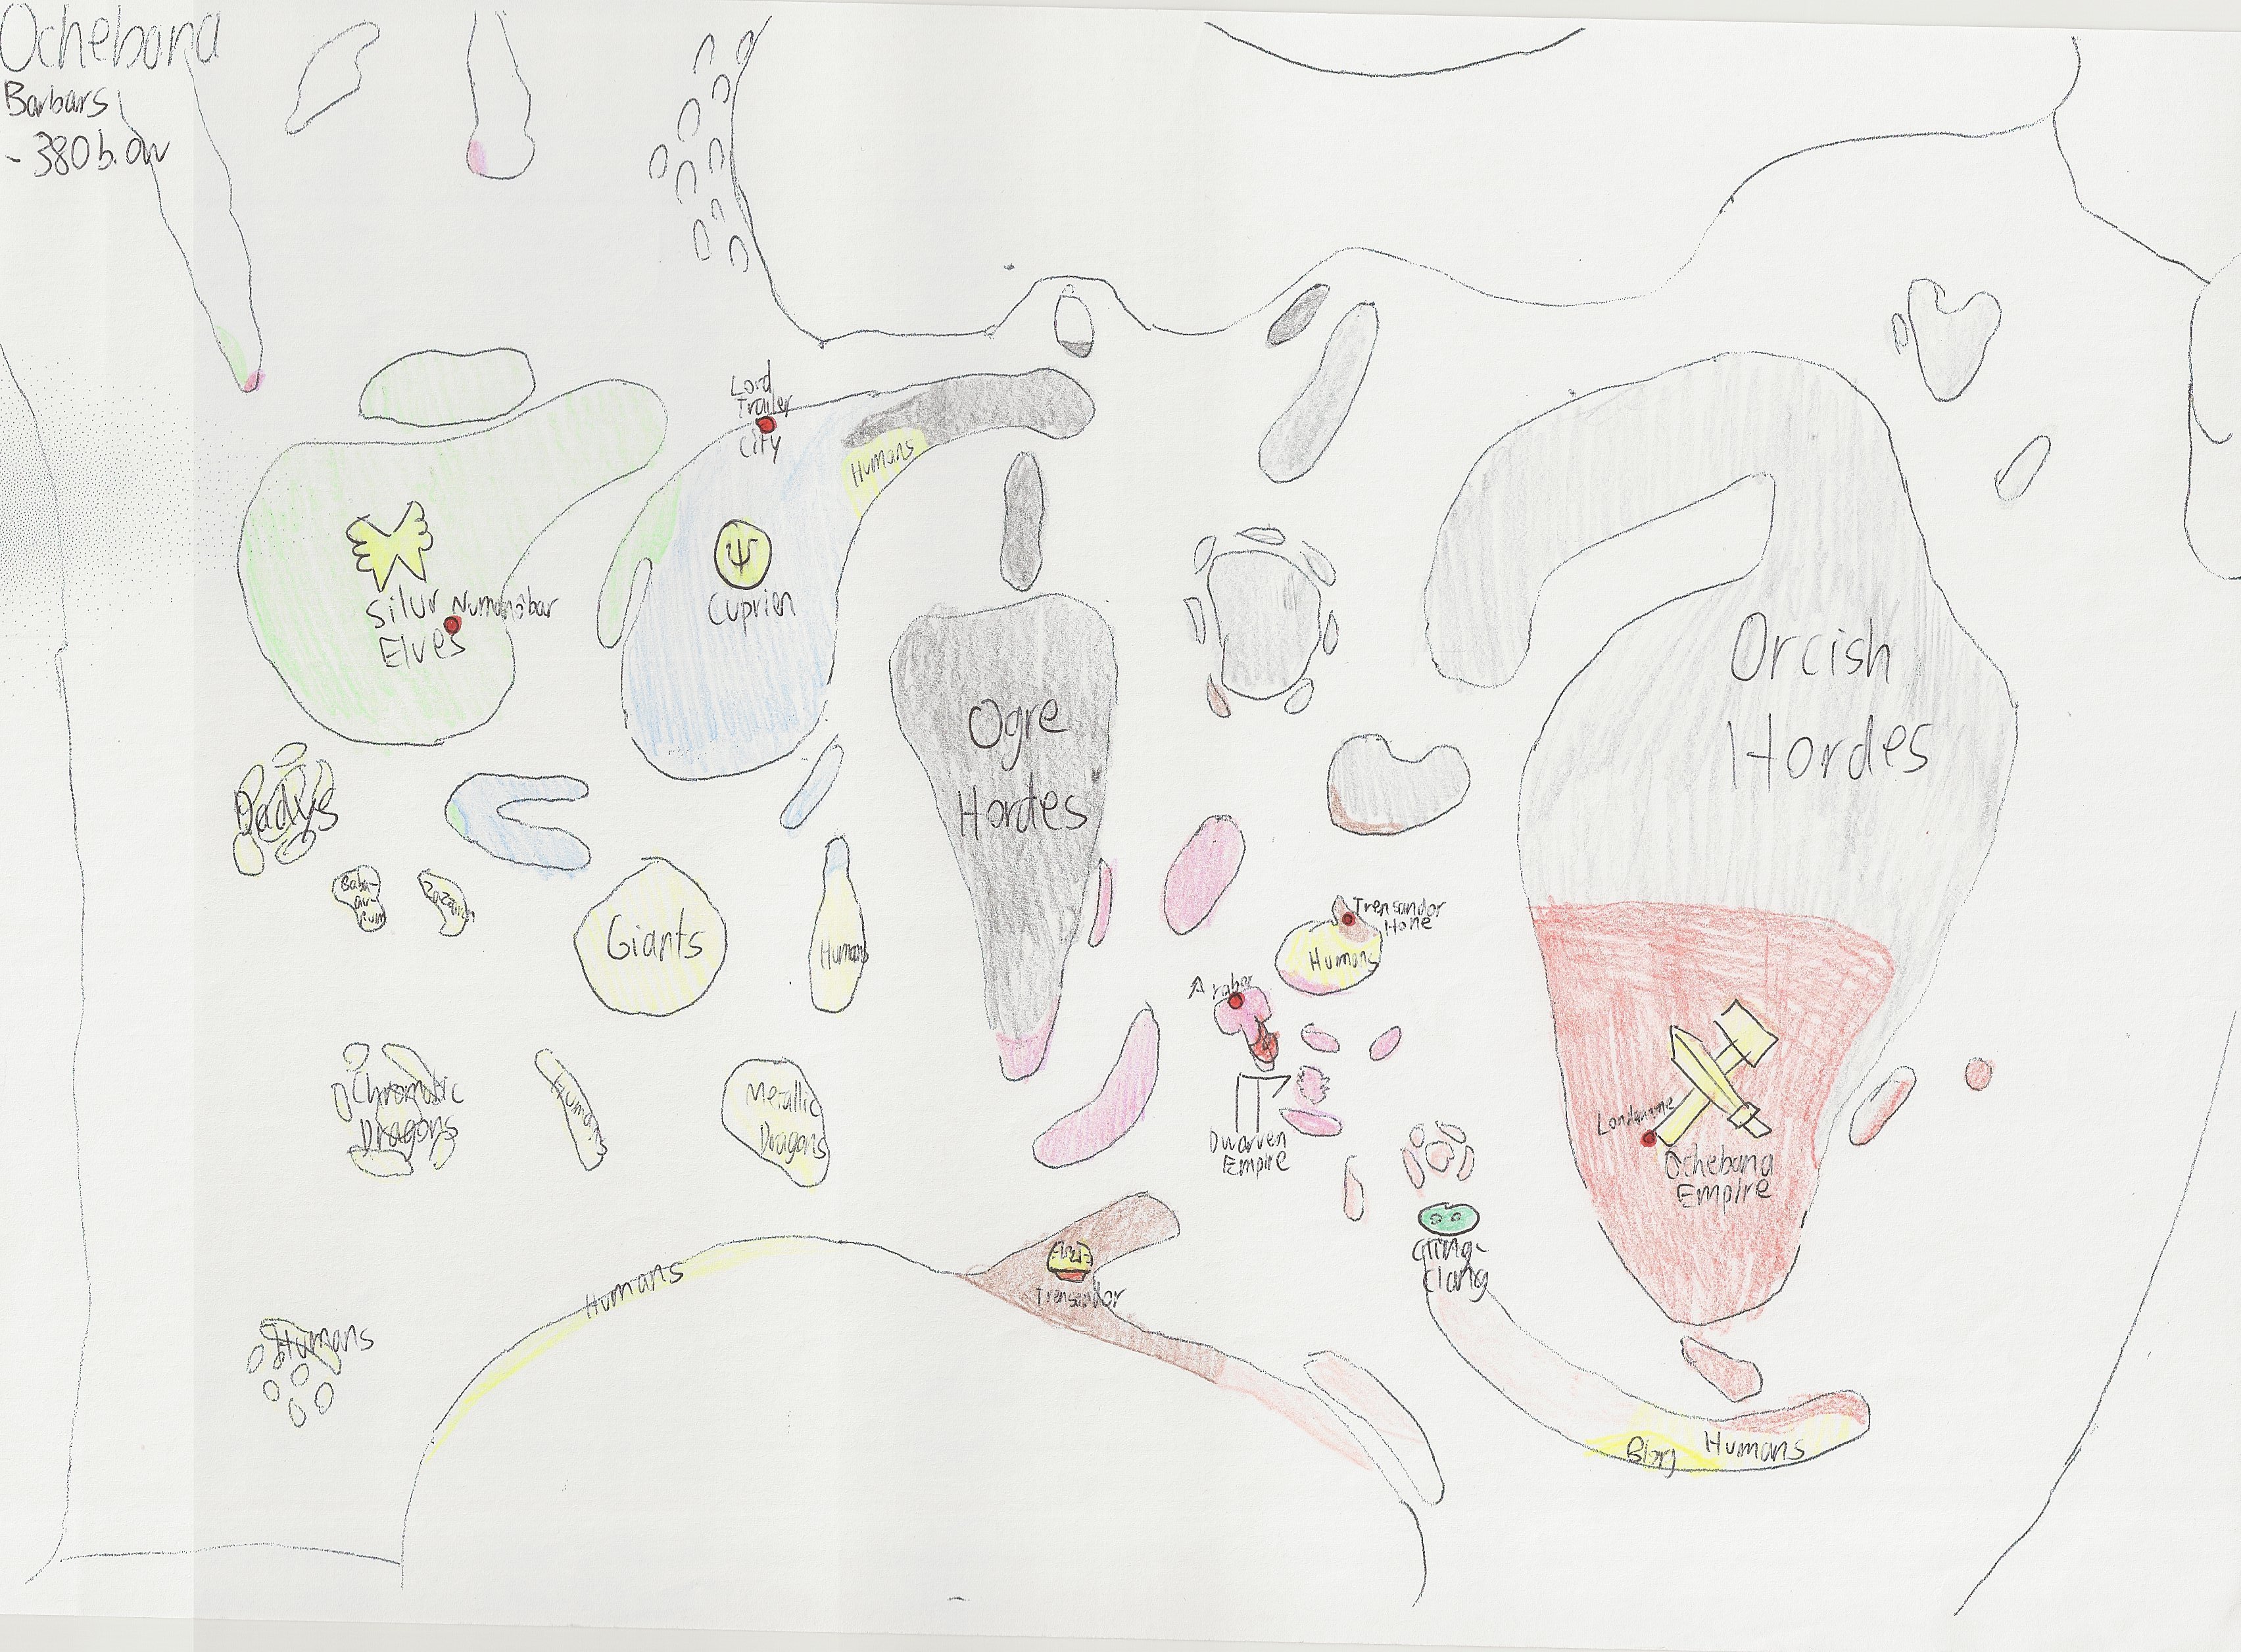 Ochebana
Barbars
- 380 b. ow
Lord
Trailer
City
Humans
Silur
Elves
Numenabar
Cuprien
Ogre
Hordes
Orcish
Hordes
Dadys
Giants
Humans
Trensandor
Hone
Humans
Arabor
Chromatic
Dragons
Humans
Metallic
Dragons
Dwarven
Empire
Ochebana
Empire
Gling-
Clang
Humans
Trensandor
Humans
Blorj
Humans